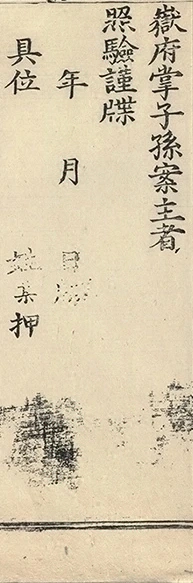 嶽府掌子孫案主者
照驗謹牒
年 月 日
具位 姓某押